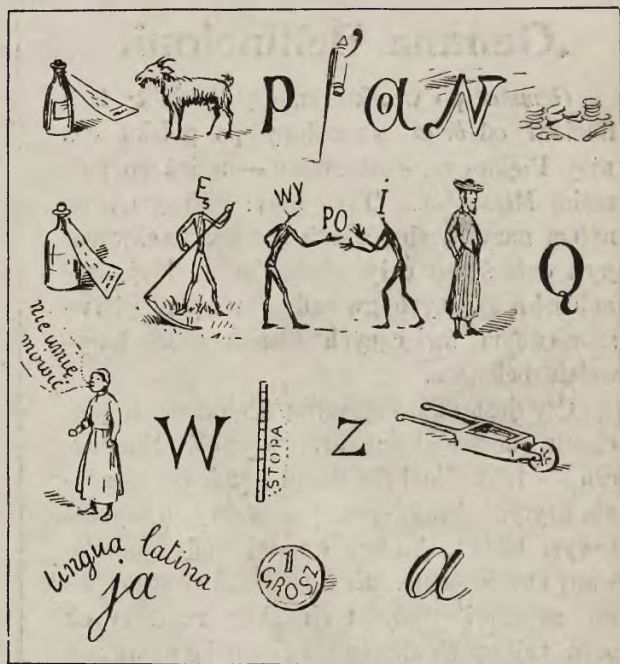 p ’ a N
E WY PO i Q
nie umię
mówić
W STOPA Z
lingua latina
ja 1 GROSZ a